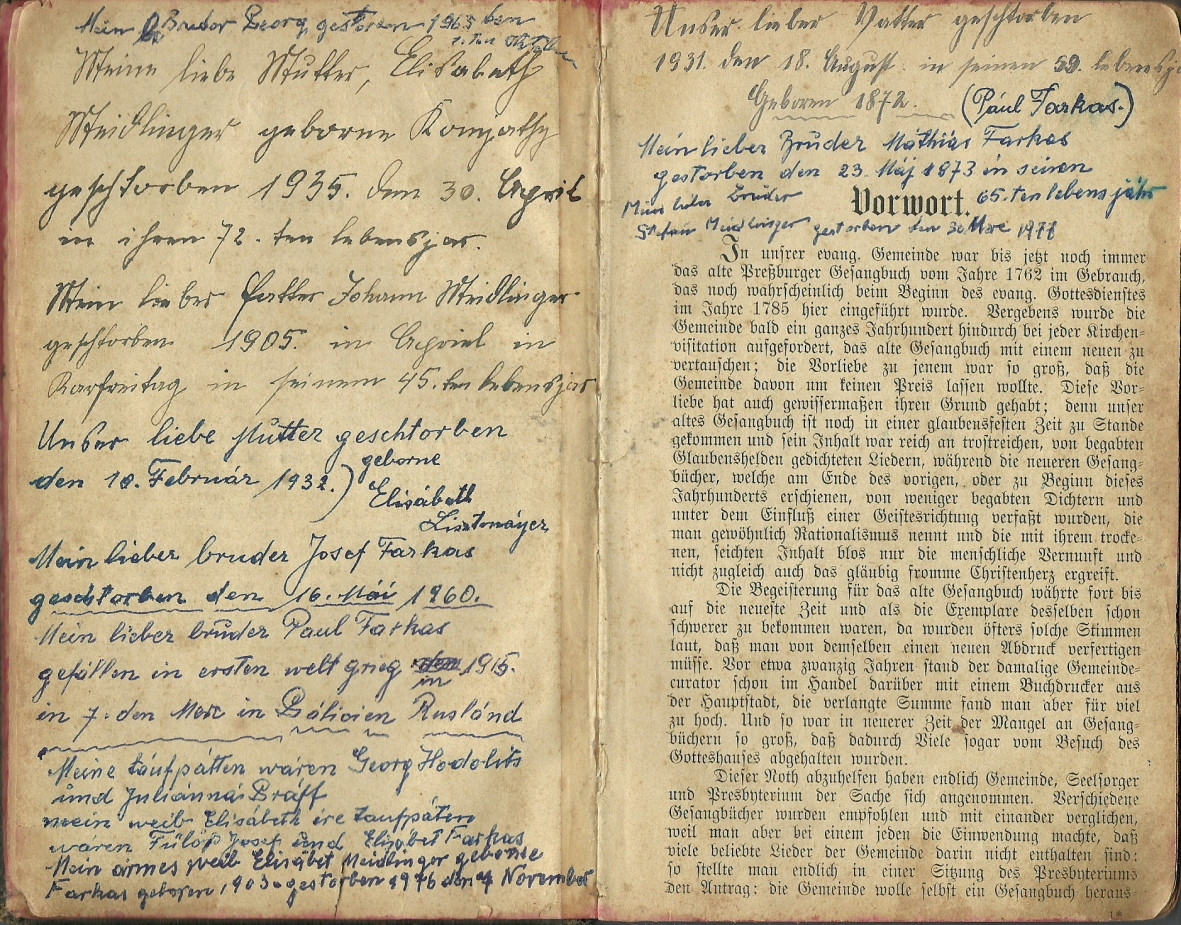 Mein Bruder Georg gestorben 1965 den
1. ten Oktober
Meine liebe Mutter, Elisabeth
Meidlinger geborne Kompathy
geschtorben 1935. den 30. April
in ihren 72. ten lebensjar.
Mein lieber fatter Johann Meidlinger
geschtorben 1905. in Apriel in
Karfreitag in seinem 45. ten lebensjar
Unser liebe Mutter geschtorben
den 18. Február 1932.) geborne
Elisábeth
Lisztmáyer
Mein lieber bruder Josef Farkas
geschtorben den 16. Mái 1960.
Mein lieber bruder Paul Farkas
gefállen in ersten welt grieg in 1915.
in 7. den März in Gálicien Rusländ
Meine táufpátten wáren Georg Hodolits
und Juliánná Gráff
mein weib Elisábeth ire táufpáten
wáren Fülöp Josef und Elisábet Farkas
Mein ármes weib Elisábet Meidlinger geborne
Farkas geboren 1903. gestorben 1976 den 4 November
Unser lieber Vatter geschtorben
1931. den 18. August. in seinen 59. lebensja
Geboren 1872. (Pául Farkas.)
Mein lieber Brúder Máthiás Farkas
gestorben den 23. Máj 1973 in seinen
65. ten lebens jähr
Mein lieber Bruder
Stefan Meidlinger gestorben den 30 1977
Vorwort.
In unsrer evang. Gemeinde war bis jetzt noch immer
das alte Preßburger Gesangbuch vom Jahre 1762 im Gebrauch,
das noch wahrscheinlich beim Beginn des evang. Gottesdienstes
im Jahre 1785 hier eingeführt wurde. Vergebens wurde die
Gemeinde bald ein ganzes Jahrhundert hindurch bei jeder Kirchen-
visitation aufgefordert, das alte Gesangbuch mit einem neuen zu
vertauschen; die Vorliebe zu jenem war so groß, daß die
Gemeinde davon um keinen Preis lassen wollte. Diese Vor-
liebe hat auch gewissermaßen ihren Grund gehabt; denn unser
altes Gesangbuch ist noch in einer glaubensfesten Zeit zu Stande
gekommen und sein Inhalt war reich an trostreichen, von begabten
Glaubenshelden gedichteten Liedern, während die neueren Gesang-
bücher, welche am Ende des vorigen, oder zu Beginn dieses
Jahrhunderts erschienen, von weniger begabten Dichtern und
unter dem Einfluß einer Geistesrichtung verfaßt wurden, die
man gewöhnlich Rationalismus nennt und die mit ihrem trocke-
nen, seichten Inhalt blos nur die menschliche Vernunft und
nicht zugleich auch das gläubig fromme Christenherz ergreift.
Die Begeisterung für das alte Gesangbuch währte fort bis
auf die neueste Zeit und als die Exemplare desselben schon
schwerer zu bekommen waren, da wurden öfters solche Stimmen
laut, daß man von demselben einen neuen Abdruck verfertigen
müsse. Vor etwa zwanzig Jahren stand der damalige Gemeinde-
curator schon im Handel darüber mit einem Buchdrucker aus
der Hauptstadt, die verlangte Summe fand man aber für viel
zu hoch. Und so war in neuerer Zeit der Mangel an Gesang-
büchern so groß, daß dadurch Viele sogar vom Besuch des
Gotteshauses abgehalten wurden.
Dieser Noth abzuhelfen haben endlich Gemeinde, Seelsorger
und Presbyterium der Sache sich angenommen. Verschiedene
Gesangbücher wurden empfohlen und mit einander verglichen,
weil man aber bei einem jeden die Einwendung machte, daß
viele beliebte Lieder der Gemeinde darin nicht enthalten sind:
so stellte man endlich in einer Sitzung des Presbyteriums
den Antrag: die Gemeinde wolle selbst ein Gesangbuch heraus-
1*